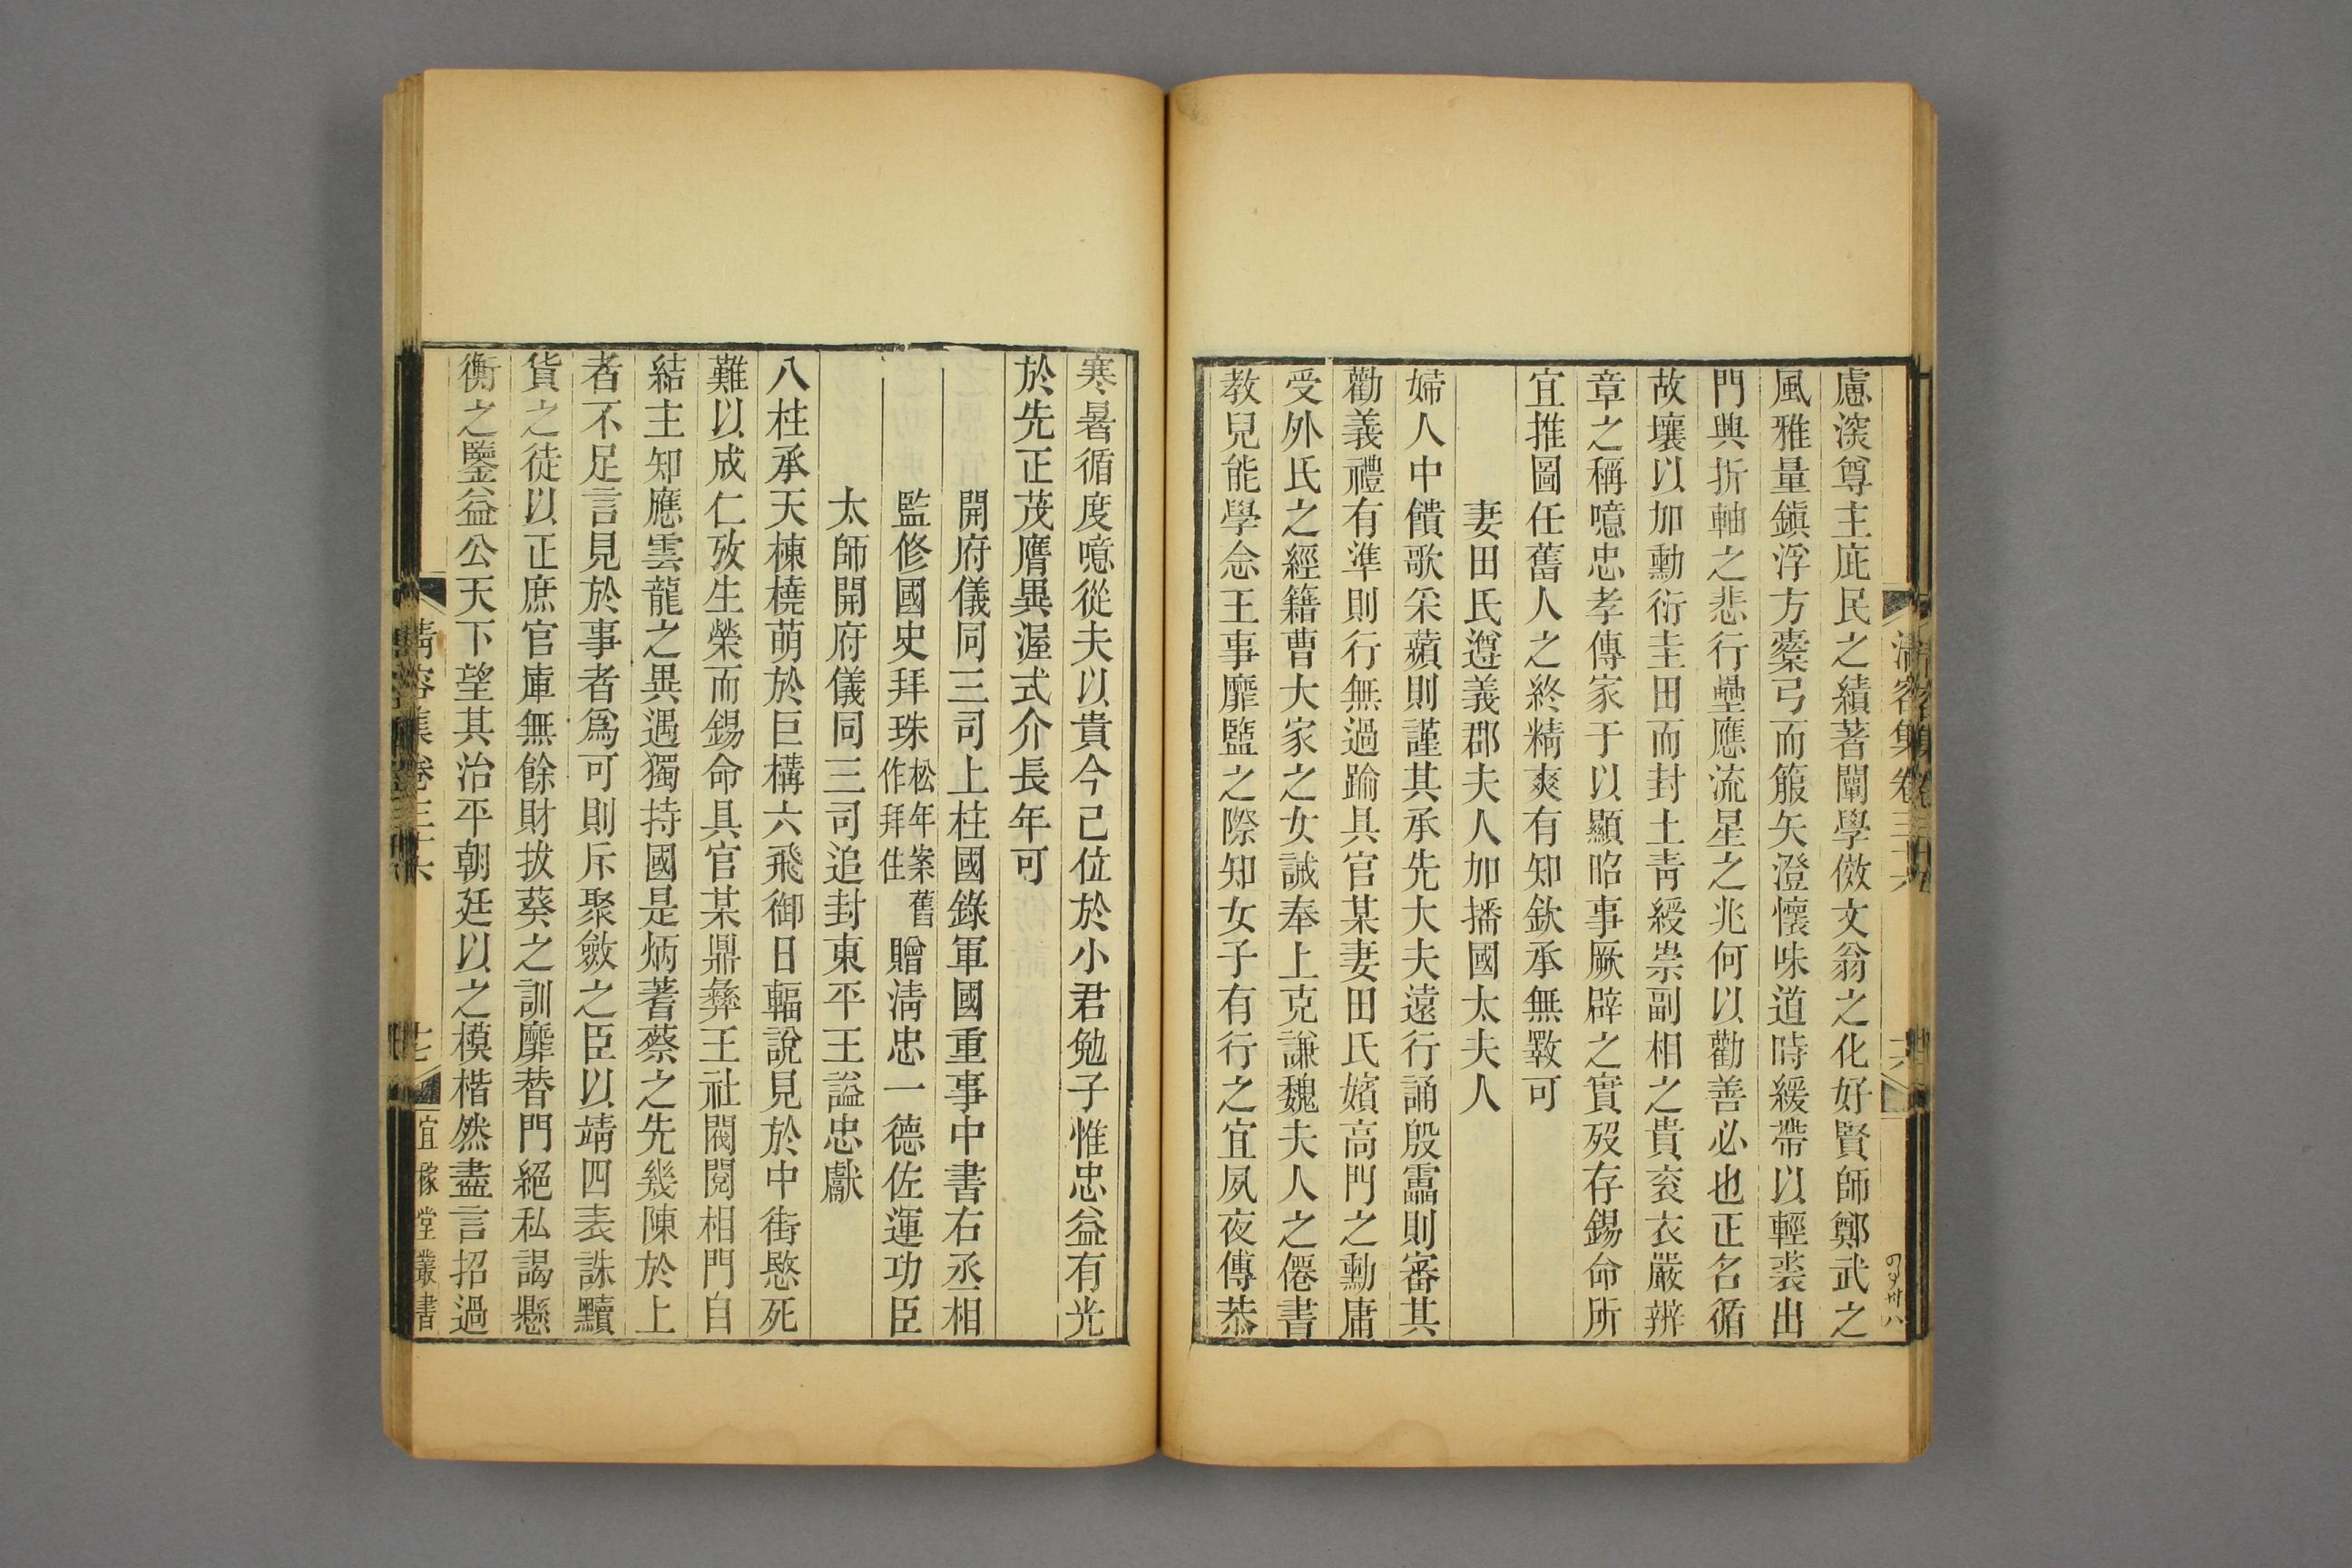 清容集卷三十六 十六
慮深尊主庇民之績著闡學倣文翁之化好賢師鄭武之
風雅量鎭浮方櫜弓而箙矢澄懷味道時緩帶以輕裘出
門興折軸之悲行壘應流星之兆何以勸善必也正名循
故壤以加勳衍圭田而封土靑綬崇副相之貴衮衣嚴辨
章之稱噫忠孝傳家于以顯昭事厥辟之實歿存錫命所
宜推圖任舊人之終精爽有知欽承無斁可
妻田氏遵義郡夫人加播國太夫人
婦人中饋歌采蘋則謹其承先大夫遠行誦殷靁則審其
勸義禮有準則行無過踰具官某妻田氏嬪高門之勳庸
受外氏之經籍曹大家之女誡奉上克謙魏夫人之僊書
教兒能學念王事靡盬之際知女子有行之宜夙夜傅恭
寒暑循度噫從夫以貴今已位於小君勉子惟忠益有光
於先正茂膺異渥式介長年可
開府儀同三司上柱國錄軍國重事中書右丞相
監修國史拜珠松年案舊作拜住贈淸忠一德佐運功臣
太師開府儀同三司追封東平王謚忠獻
八柱承天棟橈萌於巨構六飛御日輻說見於中街愍死
難以成仁攷生榮而錫命具官某鼎彝王社閥閱相門自
結主知應雲龍之異遇獨持國是炳蓍蔡之先幾陳於上
者不足言見於事者爲可則斥聚斂之臣以靖四表誅黷
貨之徒以正庶官庫無餘財拔葵之訓靡替門絕私謁懸
衡之鑒益公天下望其治平朝廷以之模楷然盡言招過
清容集卷三十六 十七 宜稼堂叢書